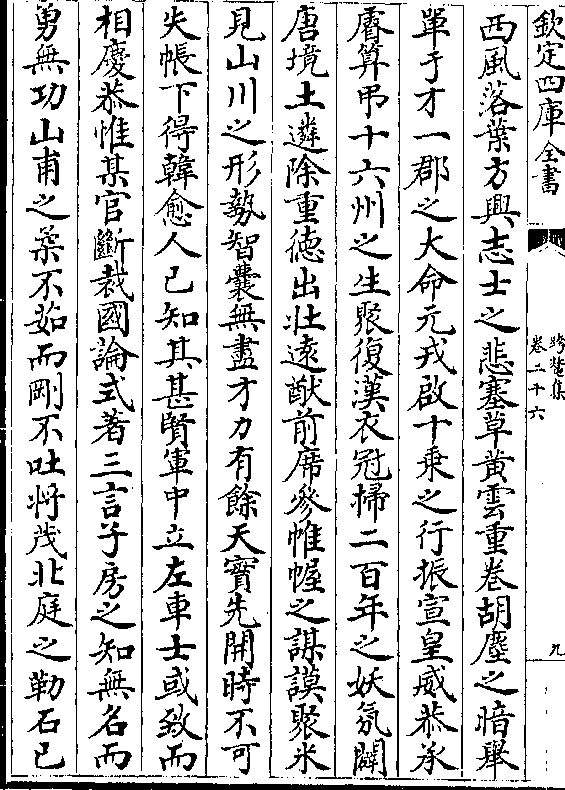 欽定四庫全書
跨鼇集
卷二十六
九
西風落葉方興志士之悲塞草黄雲重卷胡塵之暗舉
單于才一郡之大命元戎啟十乘之行振宣皇威恭承
睿算弔十六州之生聚復漢衣冠掃二百年之妖氛闢
唐境土遴除重徳出壯逺猷前席參帷幄之謀謨聚米
見山川之形勢智囊無盡才力有餘天寳先開時不可
失帳下得韓愈人已知其甚賢軍中立左車士或致而
相慶恭惟某官斷裁國論式著三言子房之知無名而
勇無功山甫之柔不茹而剛不吐将茂北庭之勒石已